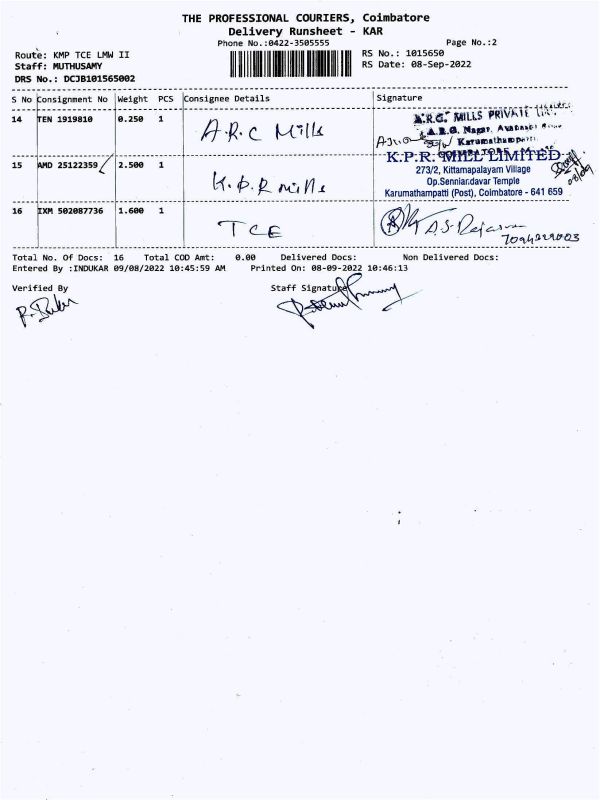 THE PROFESSIONAL COURIERS, Coimbatore
Delivery Runsheet - KAR
Phone No.:0422-3505555
Page No.:2
Route: KMP TCE LMW II
RS No.: 1015650
Staff: MUTHUSAMY
RS Date: 08-Sep-2022
DRS No.: DCJB101565002
S No Consignment No Weight PCS Consignee Details Signature
14 TEN 1919810 0.250 1 A.R.C Mills
A.R.C. MILLS PRIVATE
Karumathampatti
15 AMD 25122359 2.500 1 K.P.R mills
K.P.R. MILL LIMITED
273/2, Kittampalayam Village
Op.Senniandavar Temple
Karumathampatti (Post), Coimbatore - 641 659
16 IXM 502087736 1.600 1 TCE
Total No. Of Docs: 16 Total COD Amt: 0.00 Delivered Docs: Non Delivered Docs:
Entered By :INDUKAR 09/08/2022 10:45:59 AM Printed On: 08-09-2022 10:46:13
Verified By Staff Signature